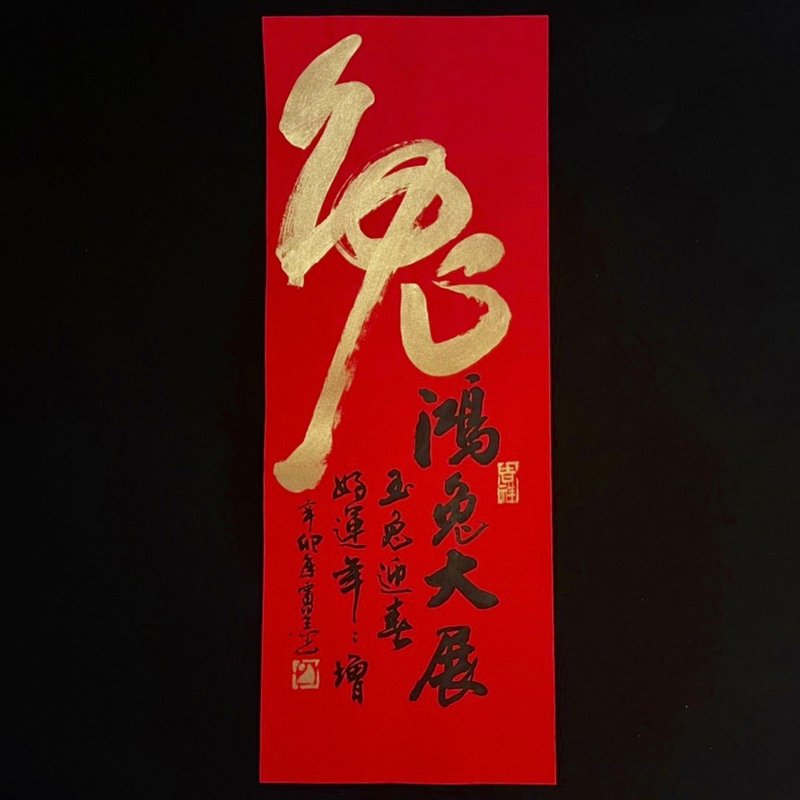 兔
鴻兔大展
玉兔迎春
好運年年增
辛卯年
吉祥